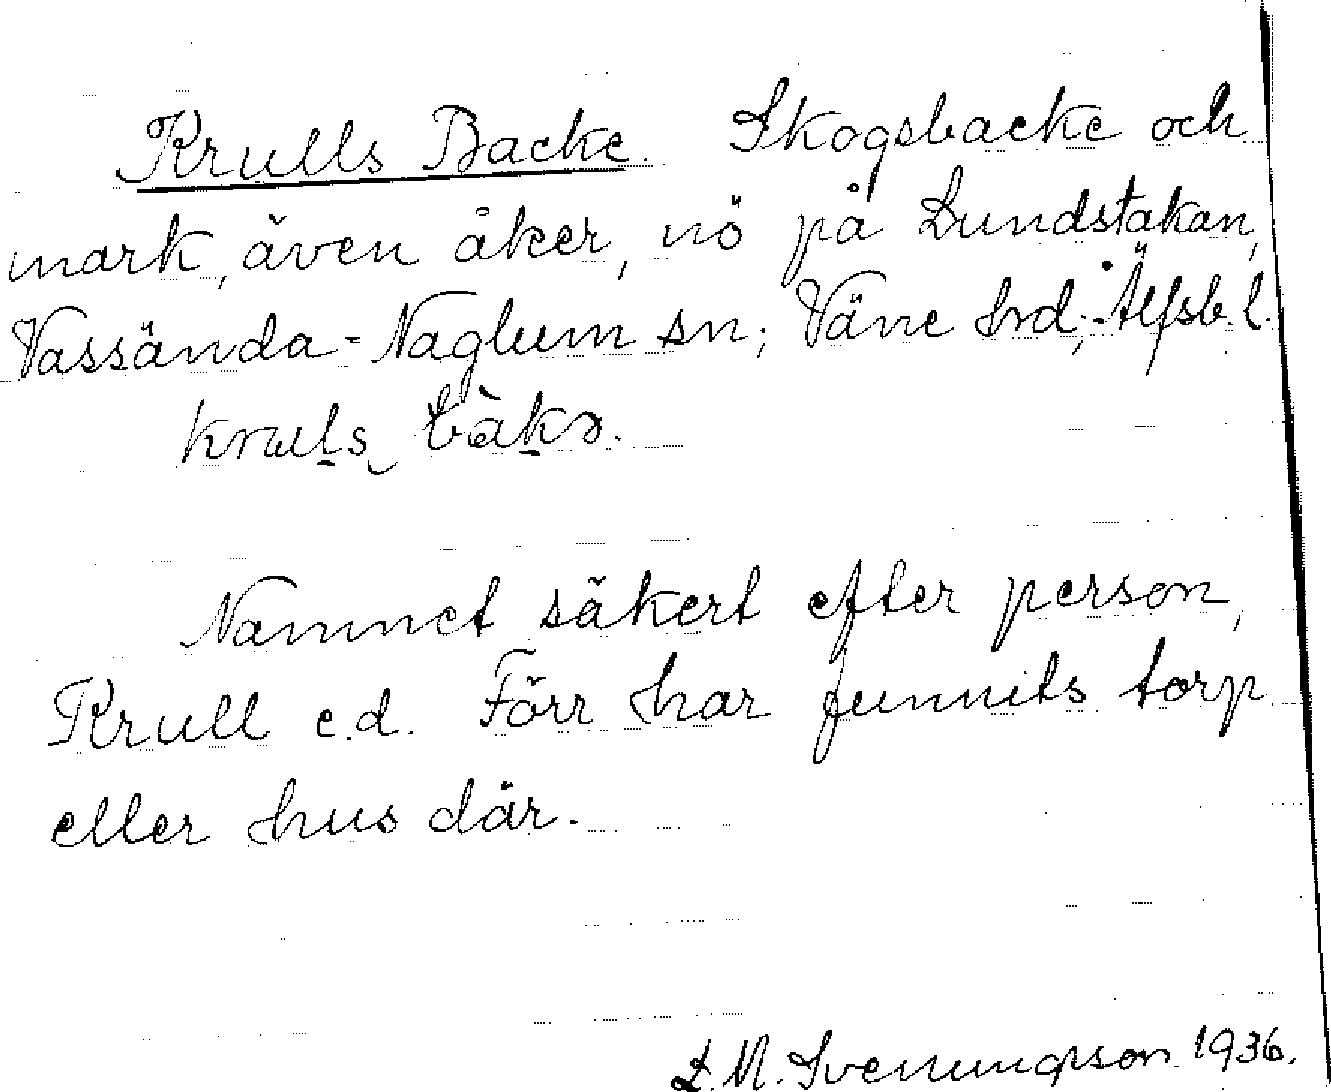 Krulls Backe. Skogsbacke och
mark, även åker, nö på Lundstakan,
Vassända-Naglum sn; Väne hrd; Älfsb. l.
kruls bàkə.
Namnet säkert efter person,
Krull e.d. Förr har funnits torp
eller hus där.
L.M. Svenungsson 1936.